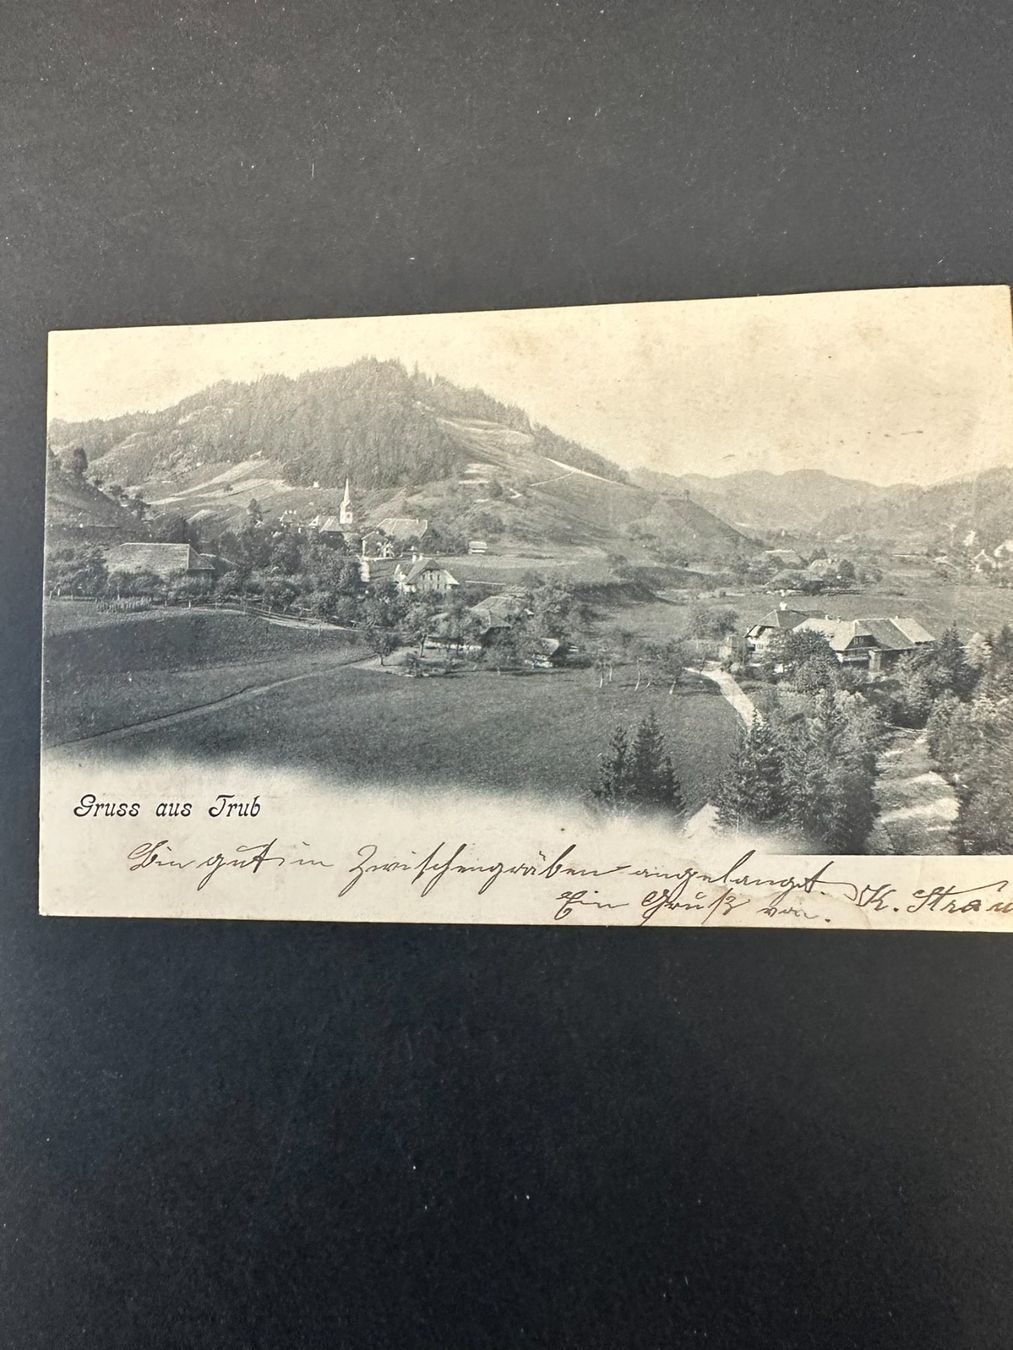 Gruss aus Trub
Bin gut im Zwischengräben angelangt.
Ein Gruß von. K. Strau